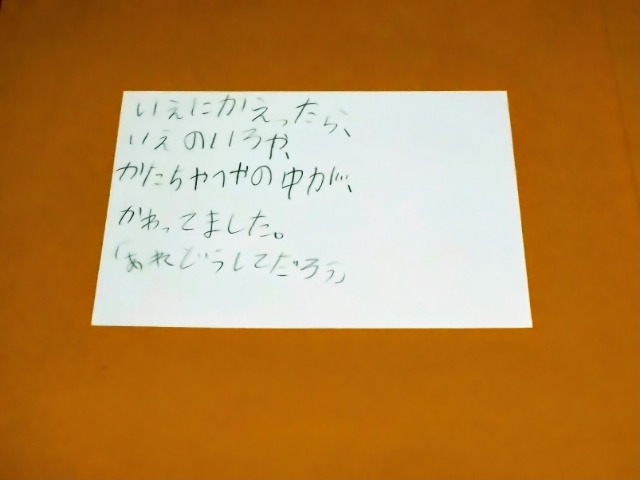 いえにかえったら、
いえのいろや、
かたちやへやの中が、
かわってました。
「あれどうしてだろう」